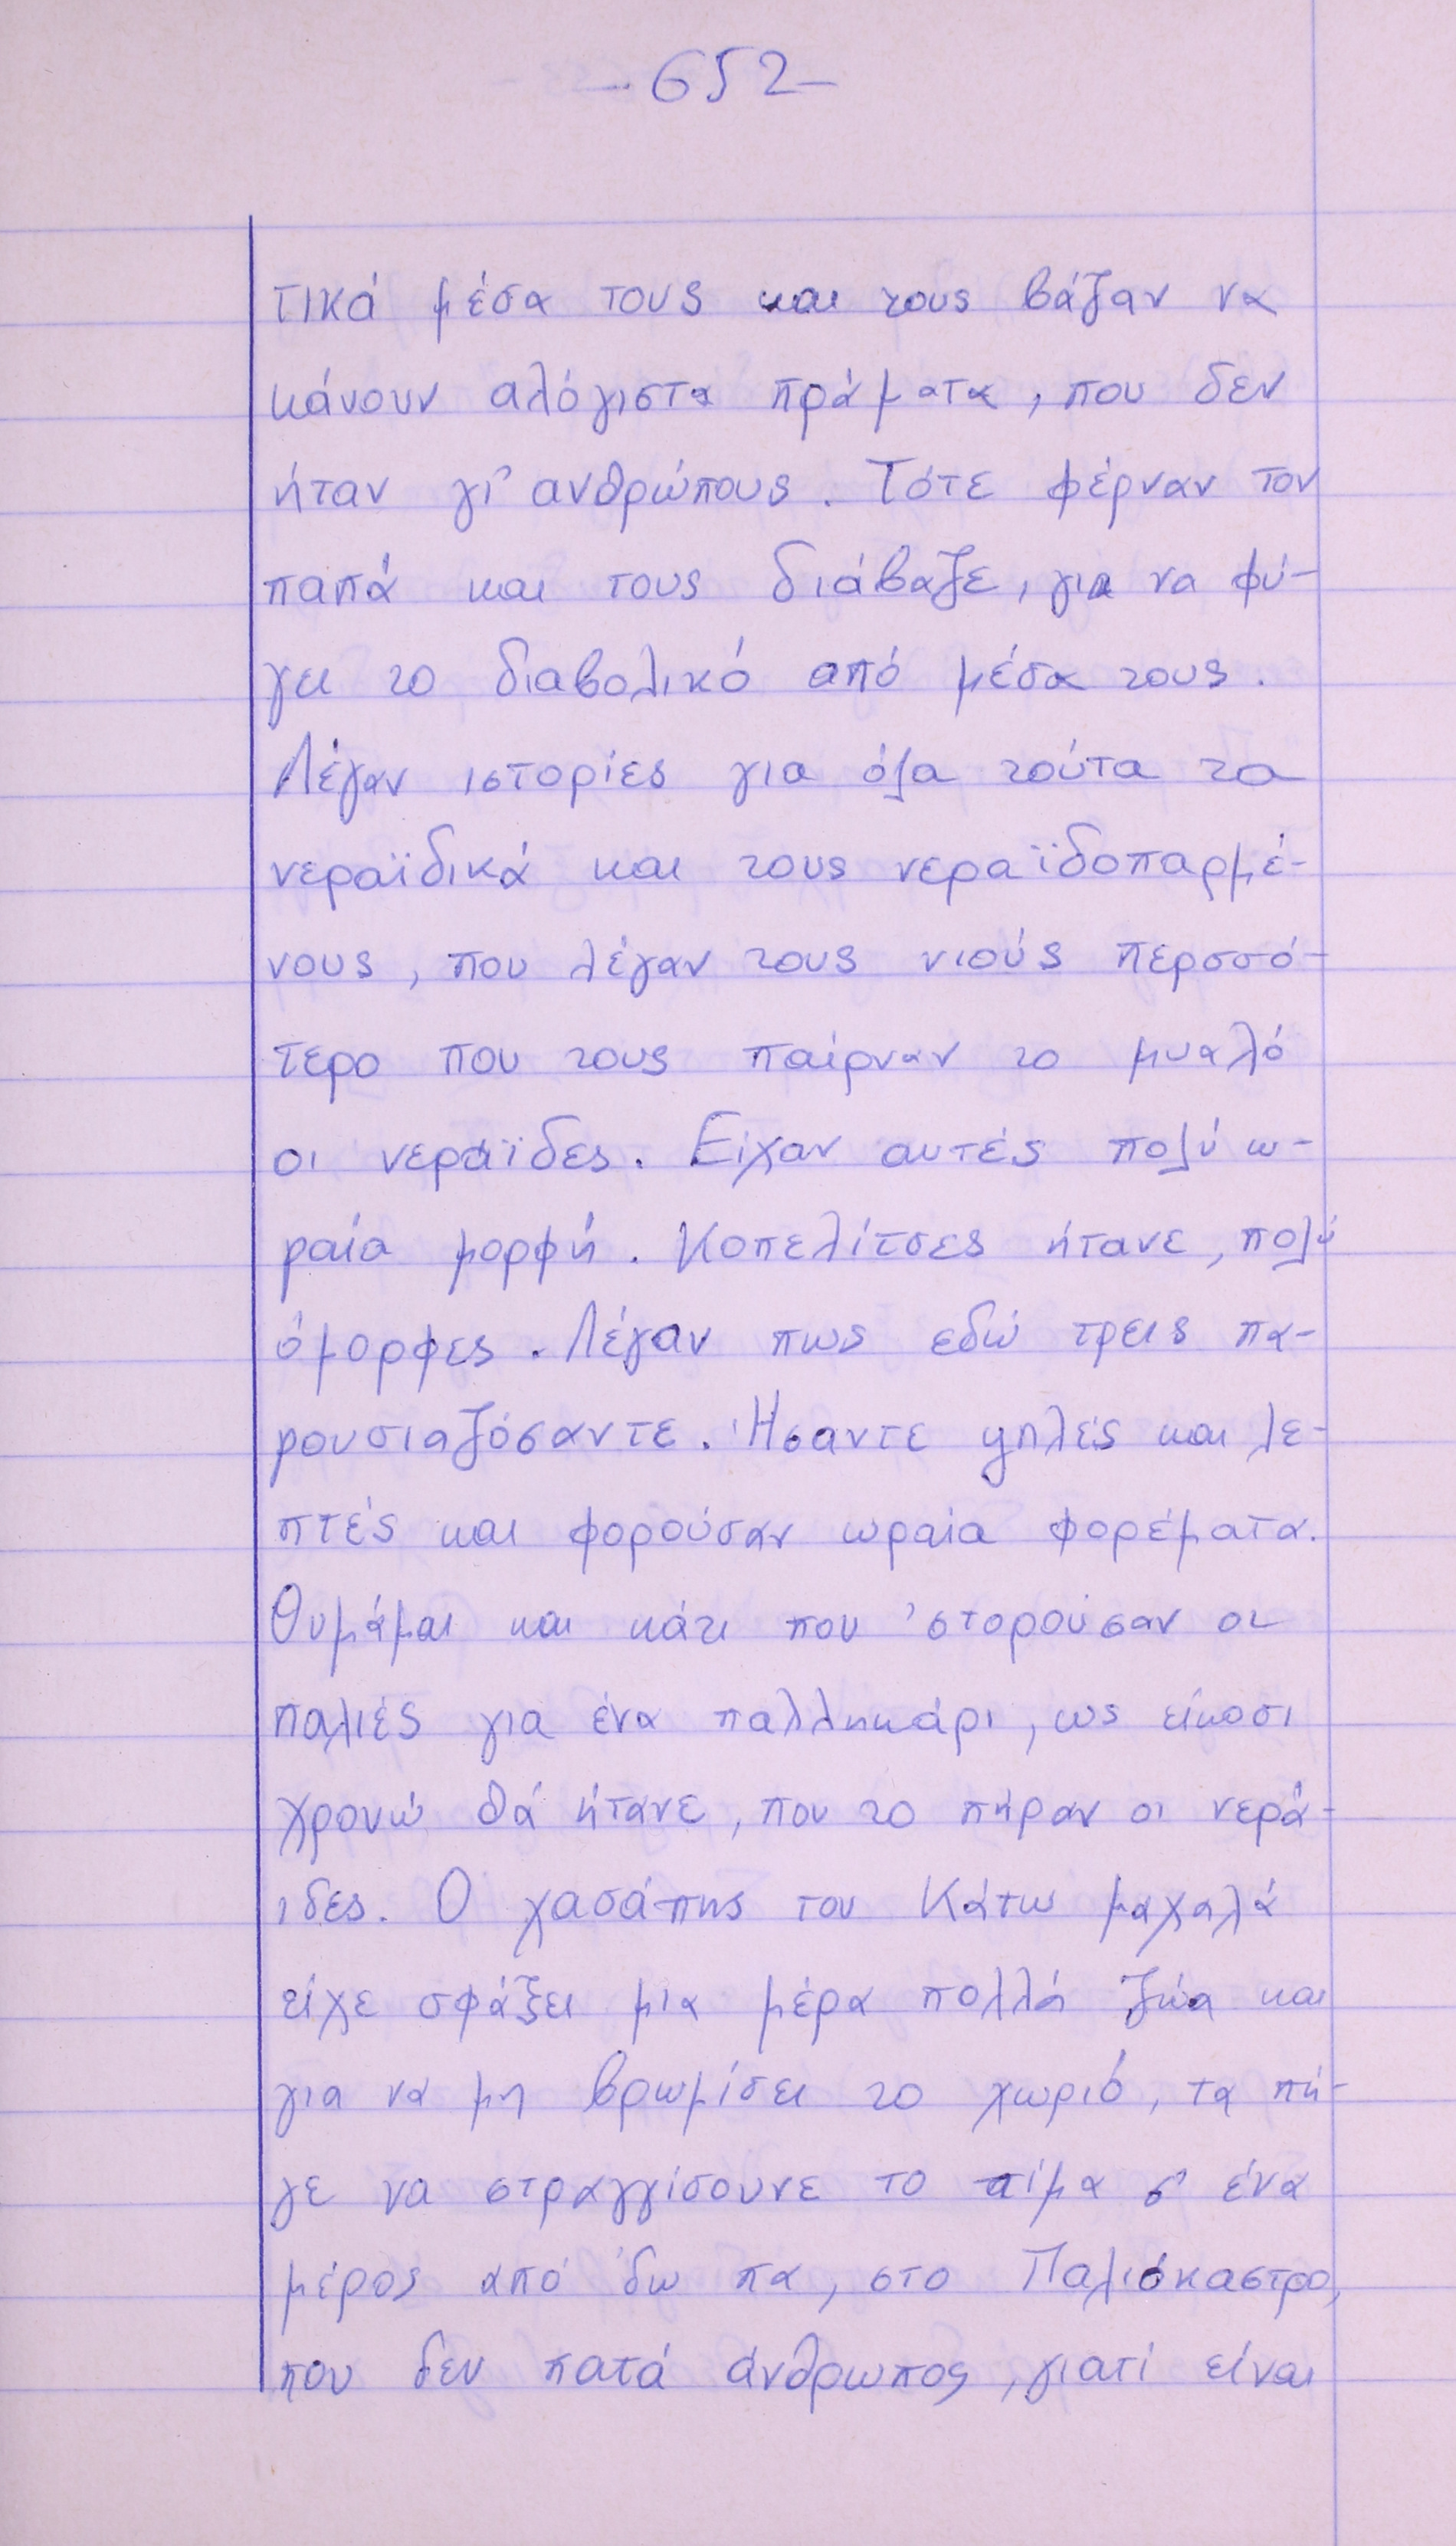 -652-
τικά μέσα τους και τους βάζαν να
κάνουν αλόγιστα πράματα, που δεν
ήταν γι' ανθρώπους. Τότε φέρναν τον
παπά και τους διάβαζε, για να φύ-
γει το διαβολικό από μέσα τους.
Λέγαν ιστορίες για όλα τούτα τα
νεραϊδικά και τους νεραϊδοπαρμέ-
νους, που λέγαν τους νιούς περσσό-
τερο που τους παίρναν το μυαλό
οι νεραϊδες. Είχαν αυτές πολύ ω-
ραία μορφή. Κοπελίτσες ήτανε, πολύ
όμορφες. Λέγαν πως εδώ τρεις πα-
ρουσιαζόσαντε. Ήσαντε ψηλές και λε-
πτές και φορούσαν ωραία φορέματα.
Θυμάμαι και κάτι που 'στορούσαν οι
παλιές για ένα παλληκάρι, ως είκοσι
χρονώ θά ήτανε, που το πήραν οι νερά-
ιδες. Ο χασάπης του Κάτω μαχαλά
είχε σφάξει μια μέρα πολλά ζώα και
για να μη βρωμίσει το χωριό, τα πή-
γε να στραγγίσουνε το αίμα σ' ένα
μέρος από 'δω πα, στο Παλιόκαστρο,
που δεν πατά άνθρωπος, γιατί είναι